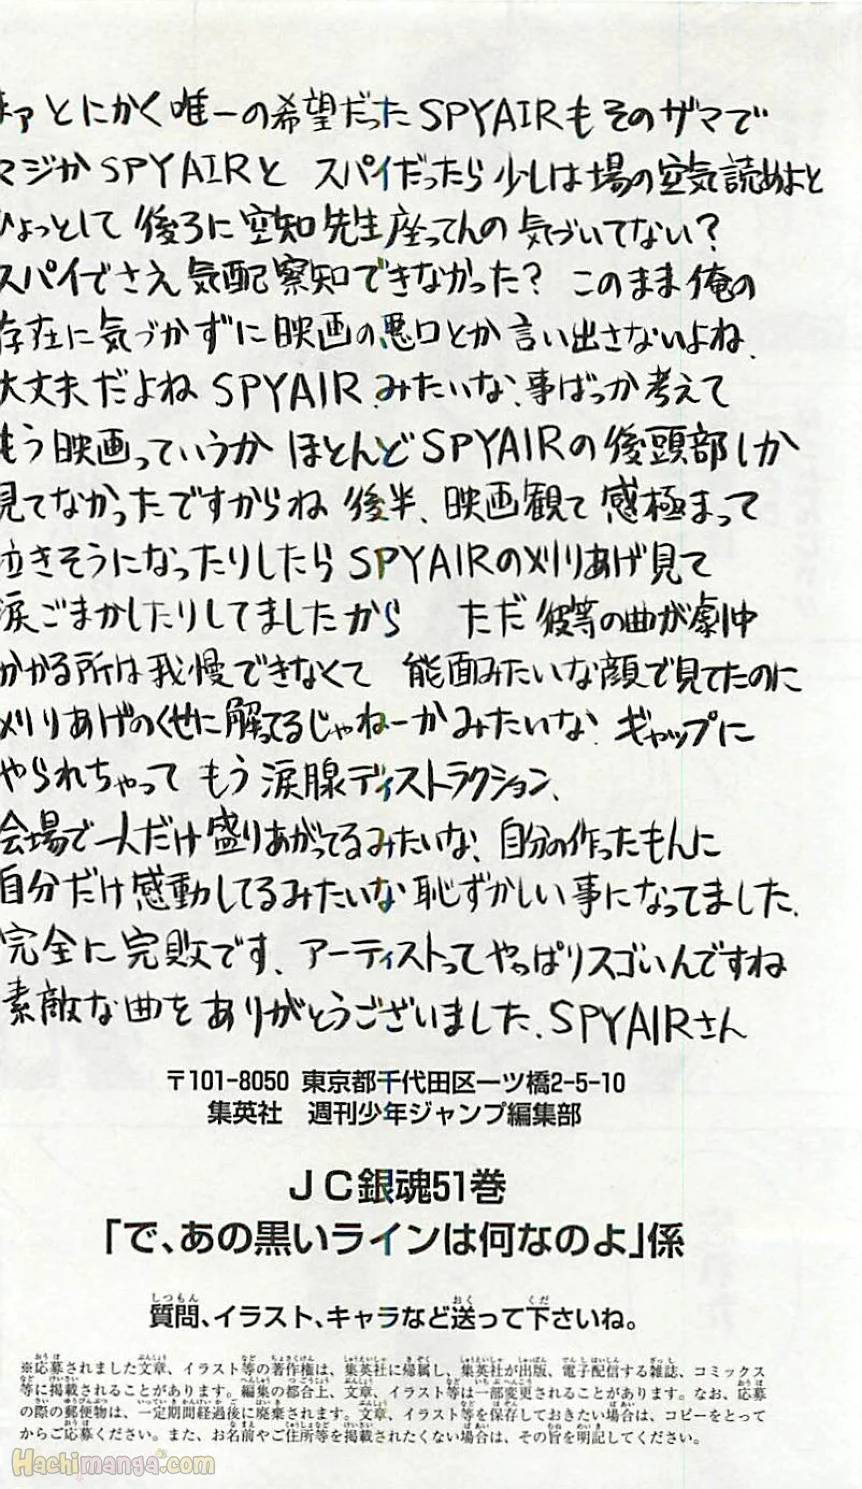 まァとにかく唯一の希望だったSPYAIRもそのザマで
マジかSPYAIRと スパイだったら少しは場の空気読めよと
ひょっとして後ろに空知先生座ってんの気づいてない?
スパイでさえ気配察知できなかった? このまま俺の
存在に気づかずに映画の悪口とか言い出さないよね、
大丈夫だよねSPYAIR、みたいな、事ばっか考えて
もう映画っていうかほとんどSPYAIRの後頭部しか
見てなかったですからね 後半、映画観て感極まって
泣きそうになったりしたらSPYAIRの刈りあげ見て
涙ごまかしたりしてましたから ただ彼等の曲が劇中
かかる所は我慢できなくて 能面みたいな顔で見てたのに
刈りあげのくせに解ってるじゃねーかみたいな、ギャップに
やられちゃって もう涙腺ディストラクション、
会場で一人だけ盛りあがってるみたいな、自分の作ったもんに
自分だけ感動してるみたいな恥ずかしい事になってました、
完全に完敗です、アーティストってやっぱりスゴいんですね
素敵な曲をありがとうございました、SPYAIRさん
〒101-8050 東京都千代田区一ツ橋2-5-10
集英社 週刊少年ジャンプ編集部
JC銀魂51巻
「で、あの黒いラインは何なのよ」係
質問、イラスト、キャラなど送って下さいね。
※応募されました文章、イラスト等の著作権は、集英社に帰属し、集英社が出版、電子配信する雑誌、コミックス
等に掲載されることがあります。編集の都合上、文章、イラスト等は一部変更されることがあります。なお、応募
の際の郵便物は、一定期間経過後に廃棄されます。文章、イラスト等を保存しておきたい場合は、コピーをとって
からご応募ください。また、お名前やご住所等を掲載されたくない場合は、その旨を明記してください。
Hachimanga.com